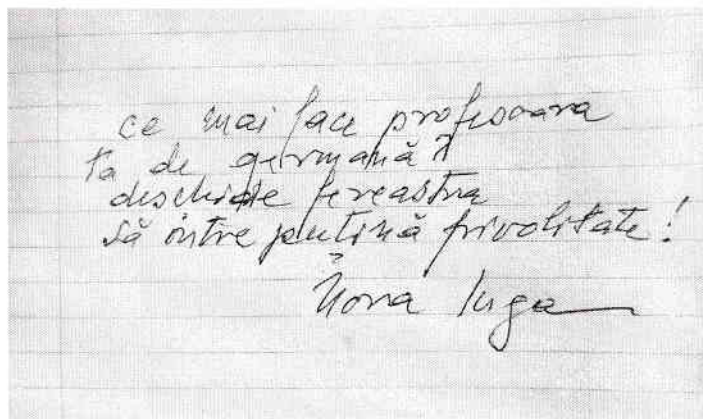 ce mai face profesoara
ta de germană?
deschide fereastra
să intre puțină frivolitate!
Nora Iuga